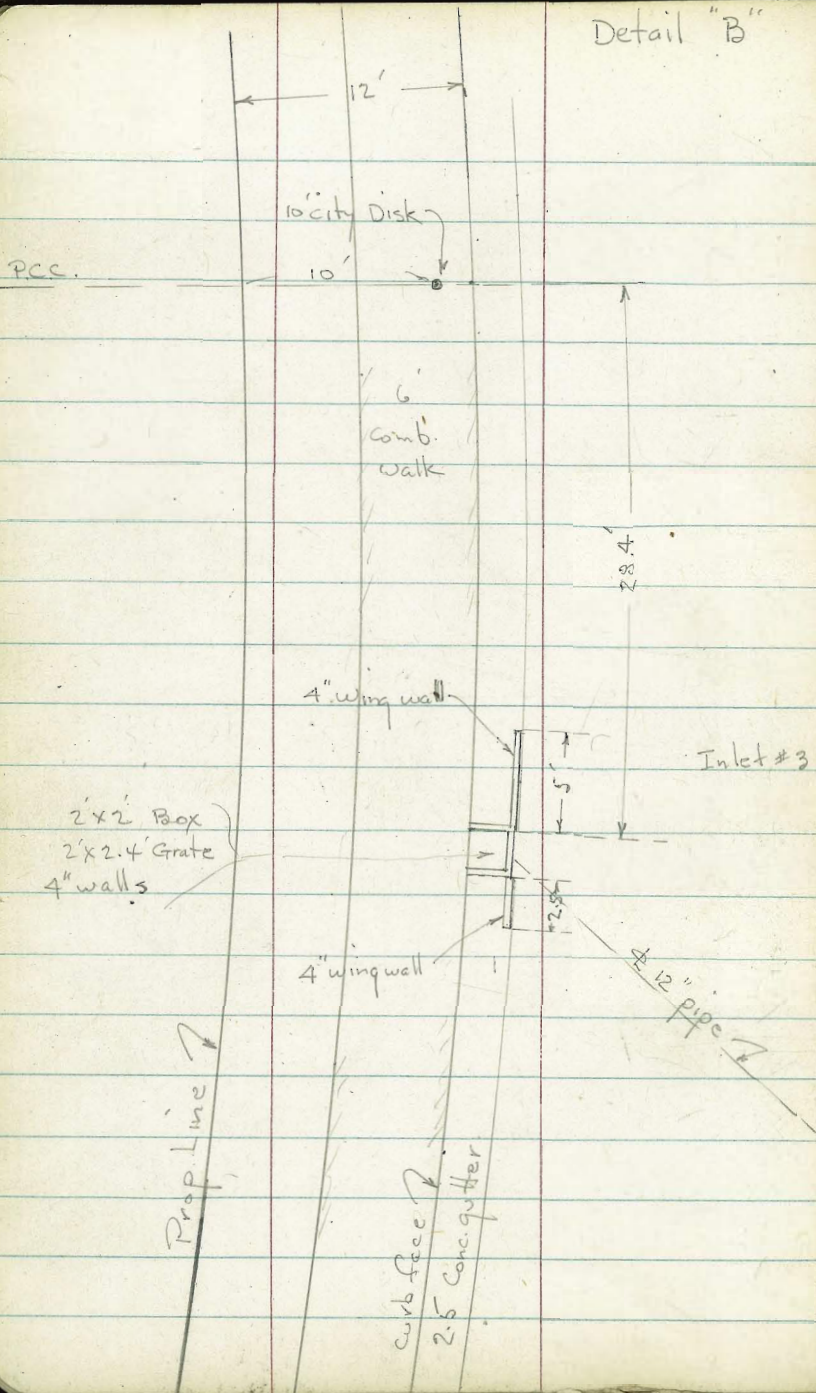 Detail "B"
12'
10' City Disk
P.C.C.
10'
6'
Comb.
Walk
4" wing wall
5'
Inlet #3
2' x 2' Box
2' x 2.4' Grate
4" walls
2.5'
4" wingwall
℄ 12" pipe
Prop. Line
Curb face
2.5 Conc. gutter